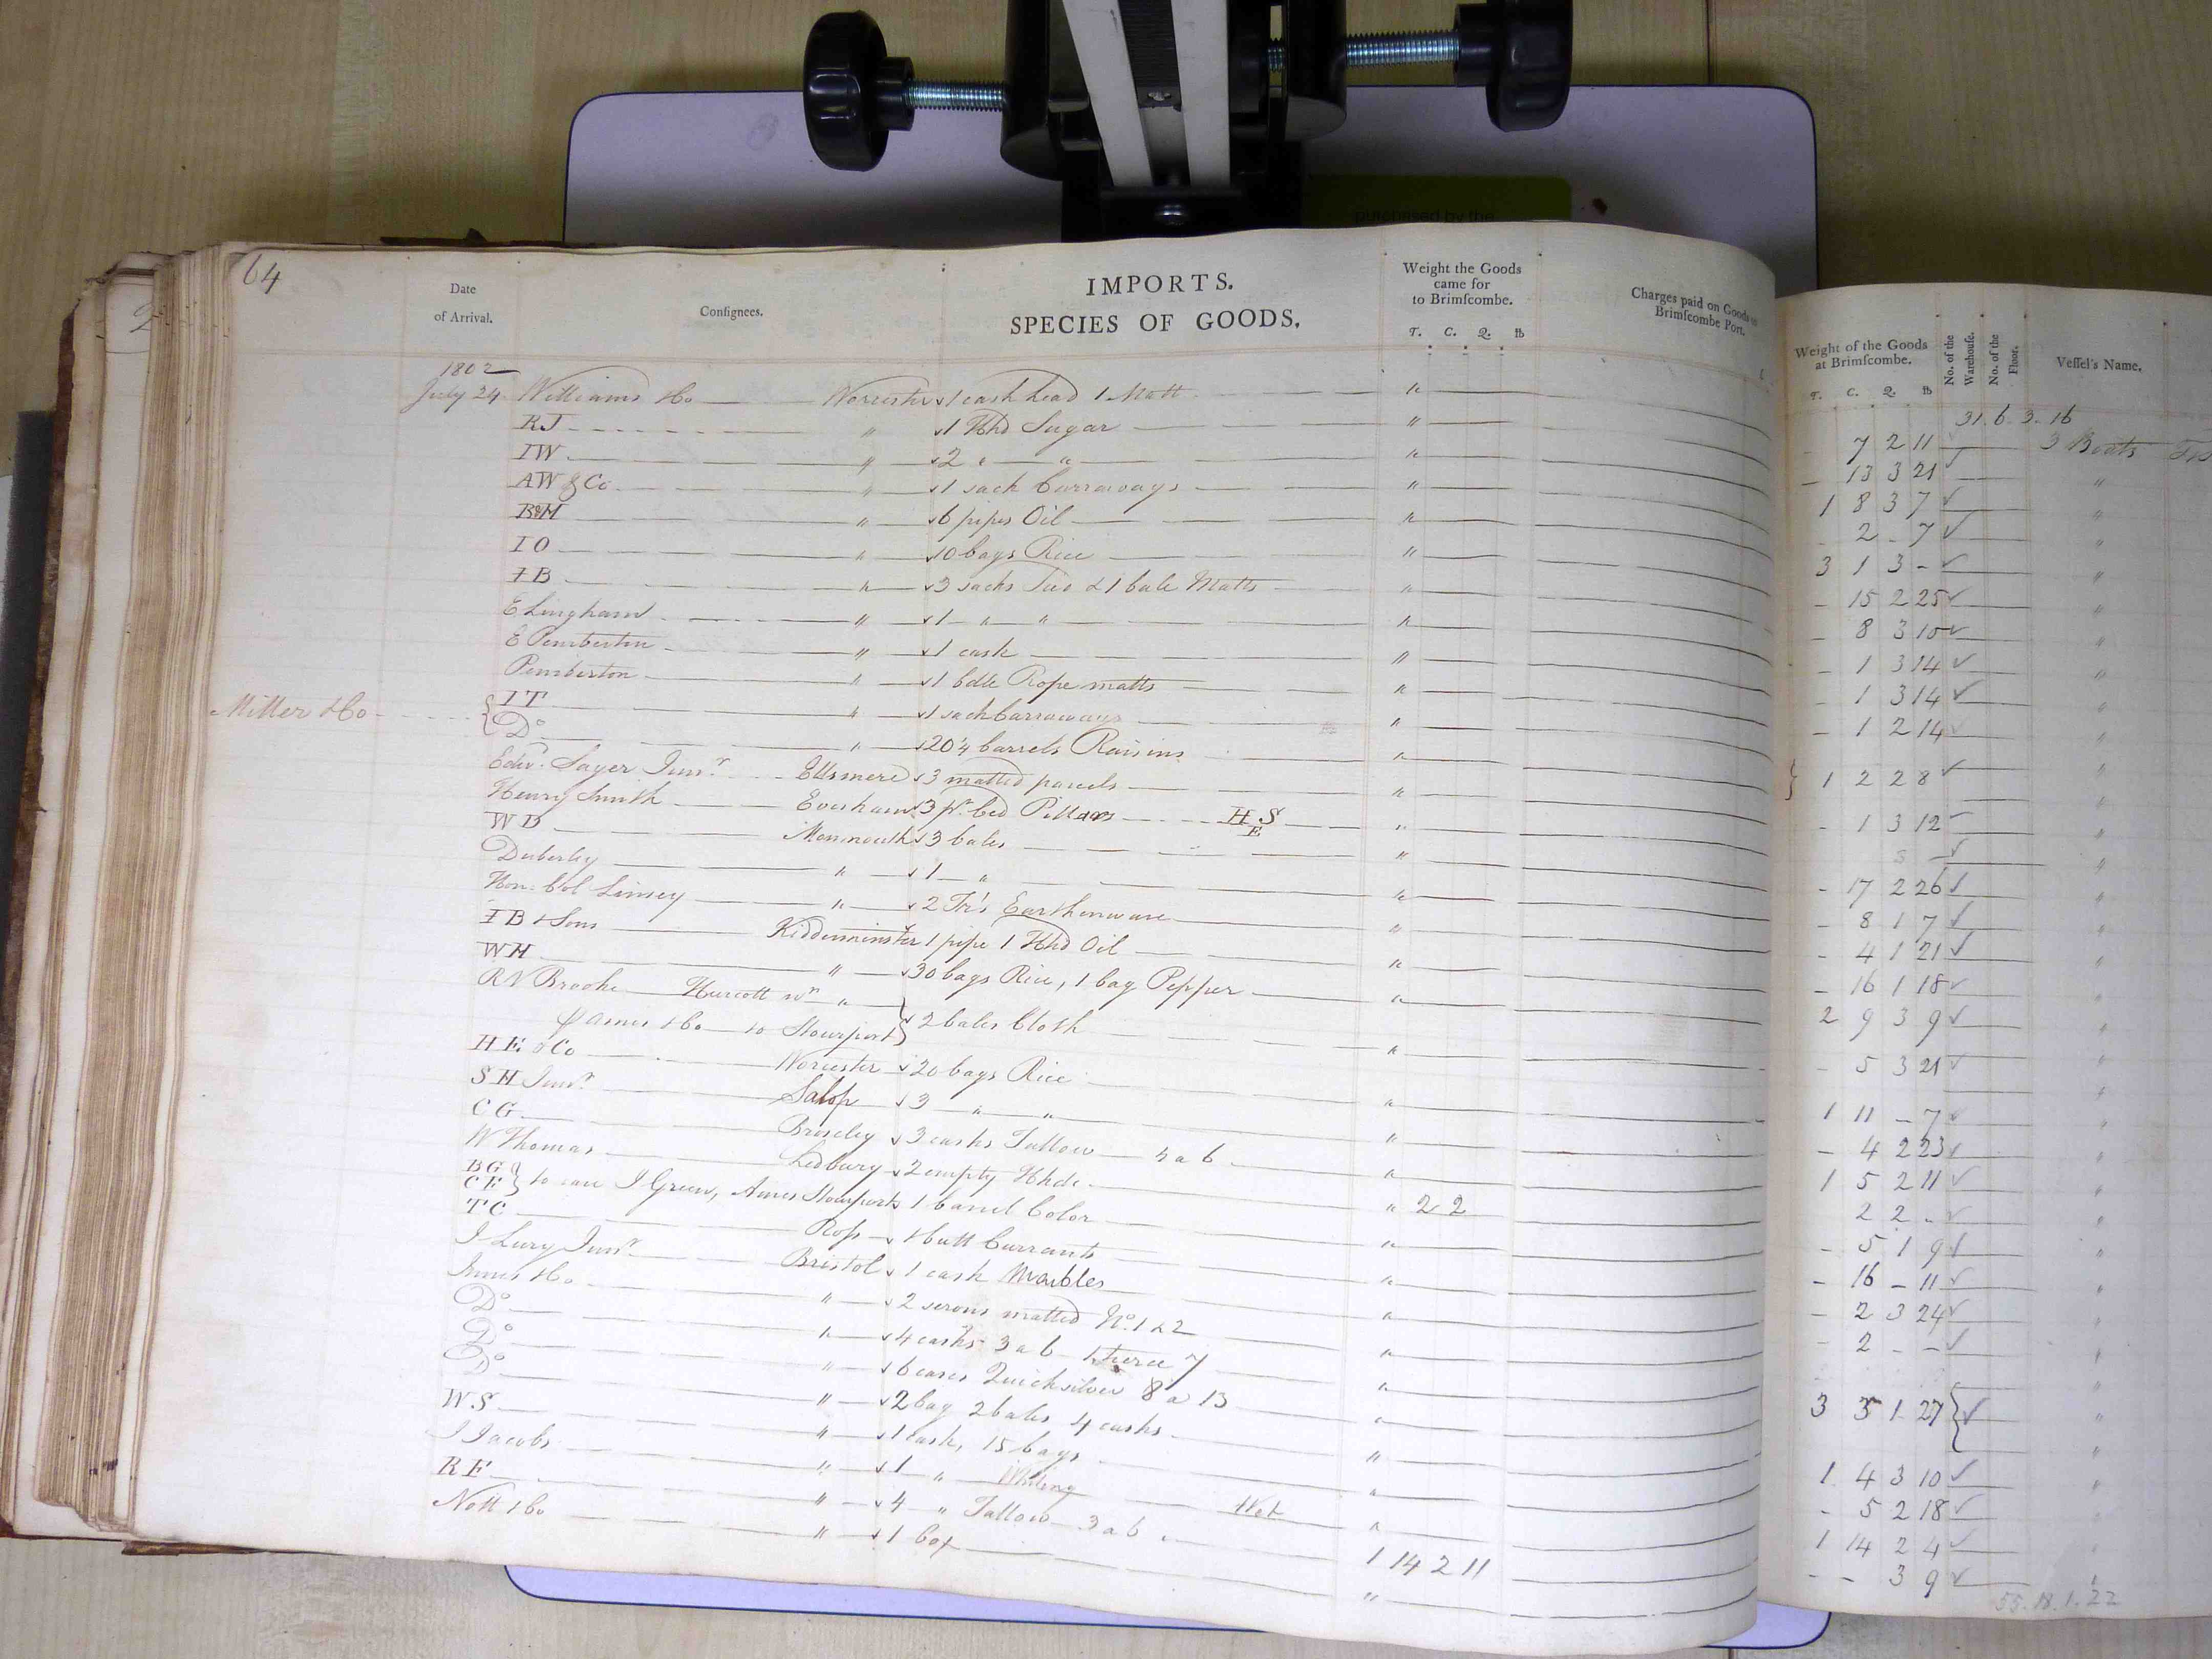 purchased by the
64
2
Date of Arrival.
Consignees.
IMPORTS.
SPECIES OF GOODS.
Weight the Goods came for to Brimſcombe.
T. C. Q. lb
Charges paid on Goods
Brimſcombe Port.
Weight of the Goods at Brimſcombe.
T. C. Q. lb
No. of the Warehouſe.
No. of the Floor.
Veſſel's Name.
31. 6. 3. 16
1802
July 24 Williams & Co Worcester 1 cask Lead 1 Matt " - 7 2 11 3 Boats
RJ " 1 Hhd Sugar " - 13 3 21 "
IW " 2 " " " 1 8 3 7 "
AW & Co " 1 sack Carraways " 2 - 7 "
B&M " 6 pipes Oil " 3 1 3 - "
IO " 10 bags Rice " - 15 2 25 "
IB " 3 sacks & 1 bale Matts " - 8 3 10 "
E Lingham " 1 " " " - 1 3 14 "
E Pemberton " 1 cask " - 1 3 14 "
Pemberton " 1 bdle Rope matts " - 1 2 14 "
Miller & Co { IT " 1 sack Carraways "
Do " 20 4 barrels Raisins " } 1 2 2 8 "
Edw. Sayer Junr. Ellsmere 3 matted parcels " - 1 3 12 "
Henry Smith Evesham 3 pr. bed Pillars H S E " "
WD Monmouth 3 bales " - 17 2 26 "
Duberley " 1 " " - 8 1 7 "
Hon. Col Linsey " 2 Tr's Earthenware " - 4 1 21 "
IB & Sons Kidderminster 1 pipe 1 Hhd Oil " - 16 1 18 "
WH " 30 bags Rice, 1 bag Pepper " 2 9 3 9 "
RN Brooke Hurcott nr "
James & Co to Stourport } 2 bales Cloth " - 5 3 21 "
HE & Co Worcester 20 bags Rice " 1 11 - 7 "
SH Junr. Salop 3 " " " - 4 2 23 "
CG Broseley 3 casks Tallow 4 a 6 " 1 5 2 11 "
W Thomas Ledbury 2 empty Hhds " 2 2 2 2 - "
BG
CE } to care I Green, Ames Stourport 1 barrel Color " - 5 1 9 "
TC Ross 1 butt Currants " - 16 - 11 "
I Lury Junr. Bristol 1 cask Marbles " - 2 3 24 "
& Co " 2 serons matted No. 1 & 2 " - 2 - - "
Do " 4 casks 3 a 6 1 Tierce 7 "
Do " 6 cases Quicksilver 8 a 13 " 3 5 1 27 "
Do " 2 bag 2 bales 4 casks "
WS " 1 cask, 15 bags " 1 4 3 10 "
I Jacobs " 1 " Whiting " - 5 2 18 "
RF " 4 " Tallow 3 a 6 1 14 2 11 1 14 2 4
Nott & Co " 1 box " - - 3 9
55. 18. 1. 22